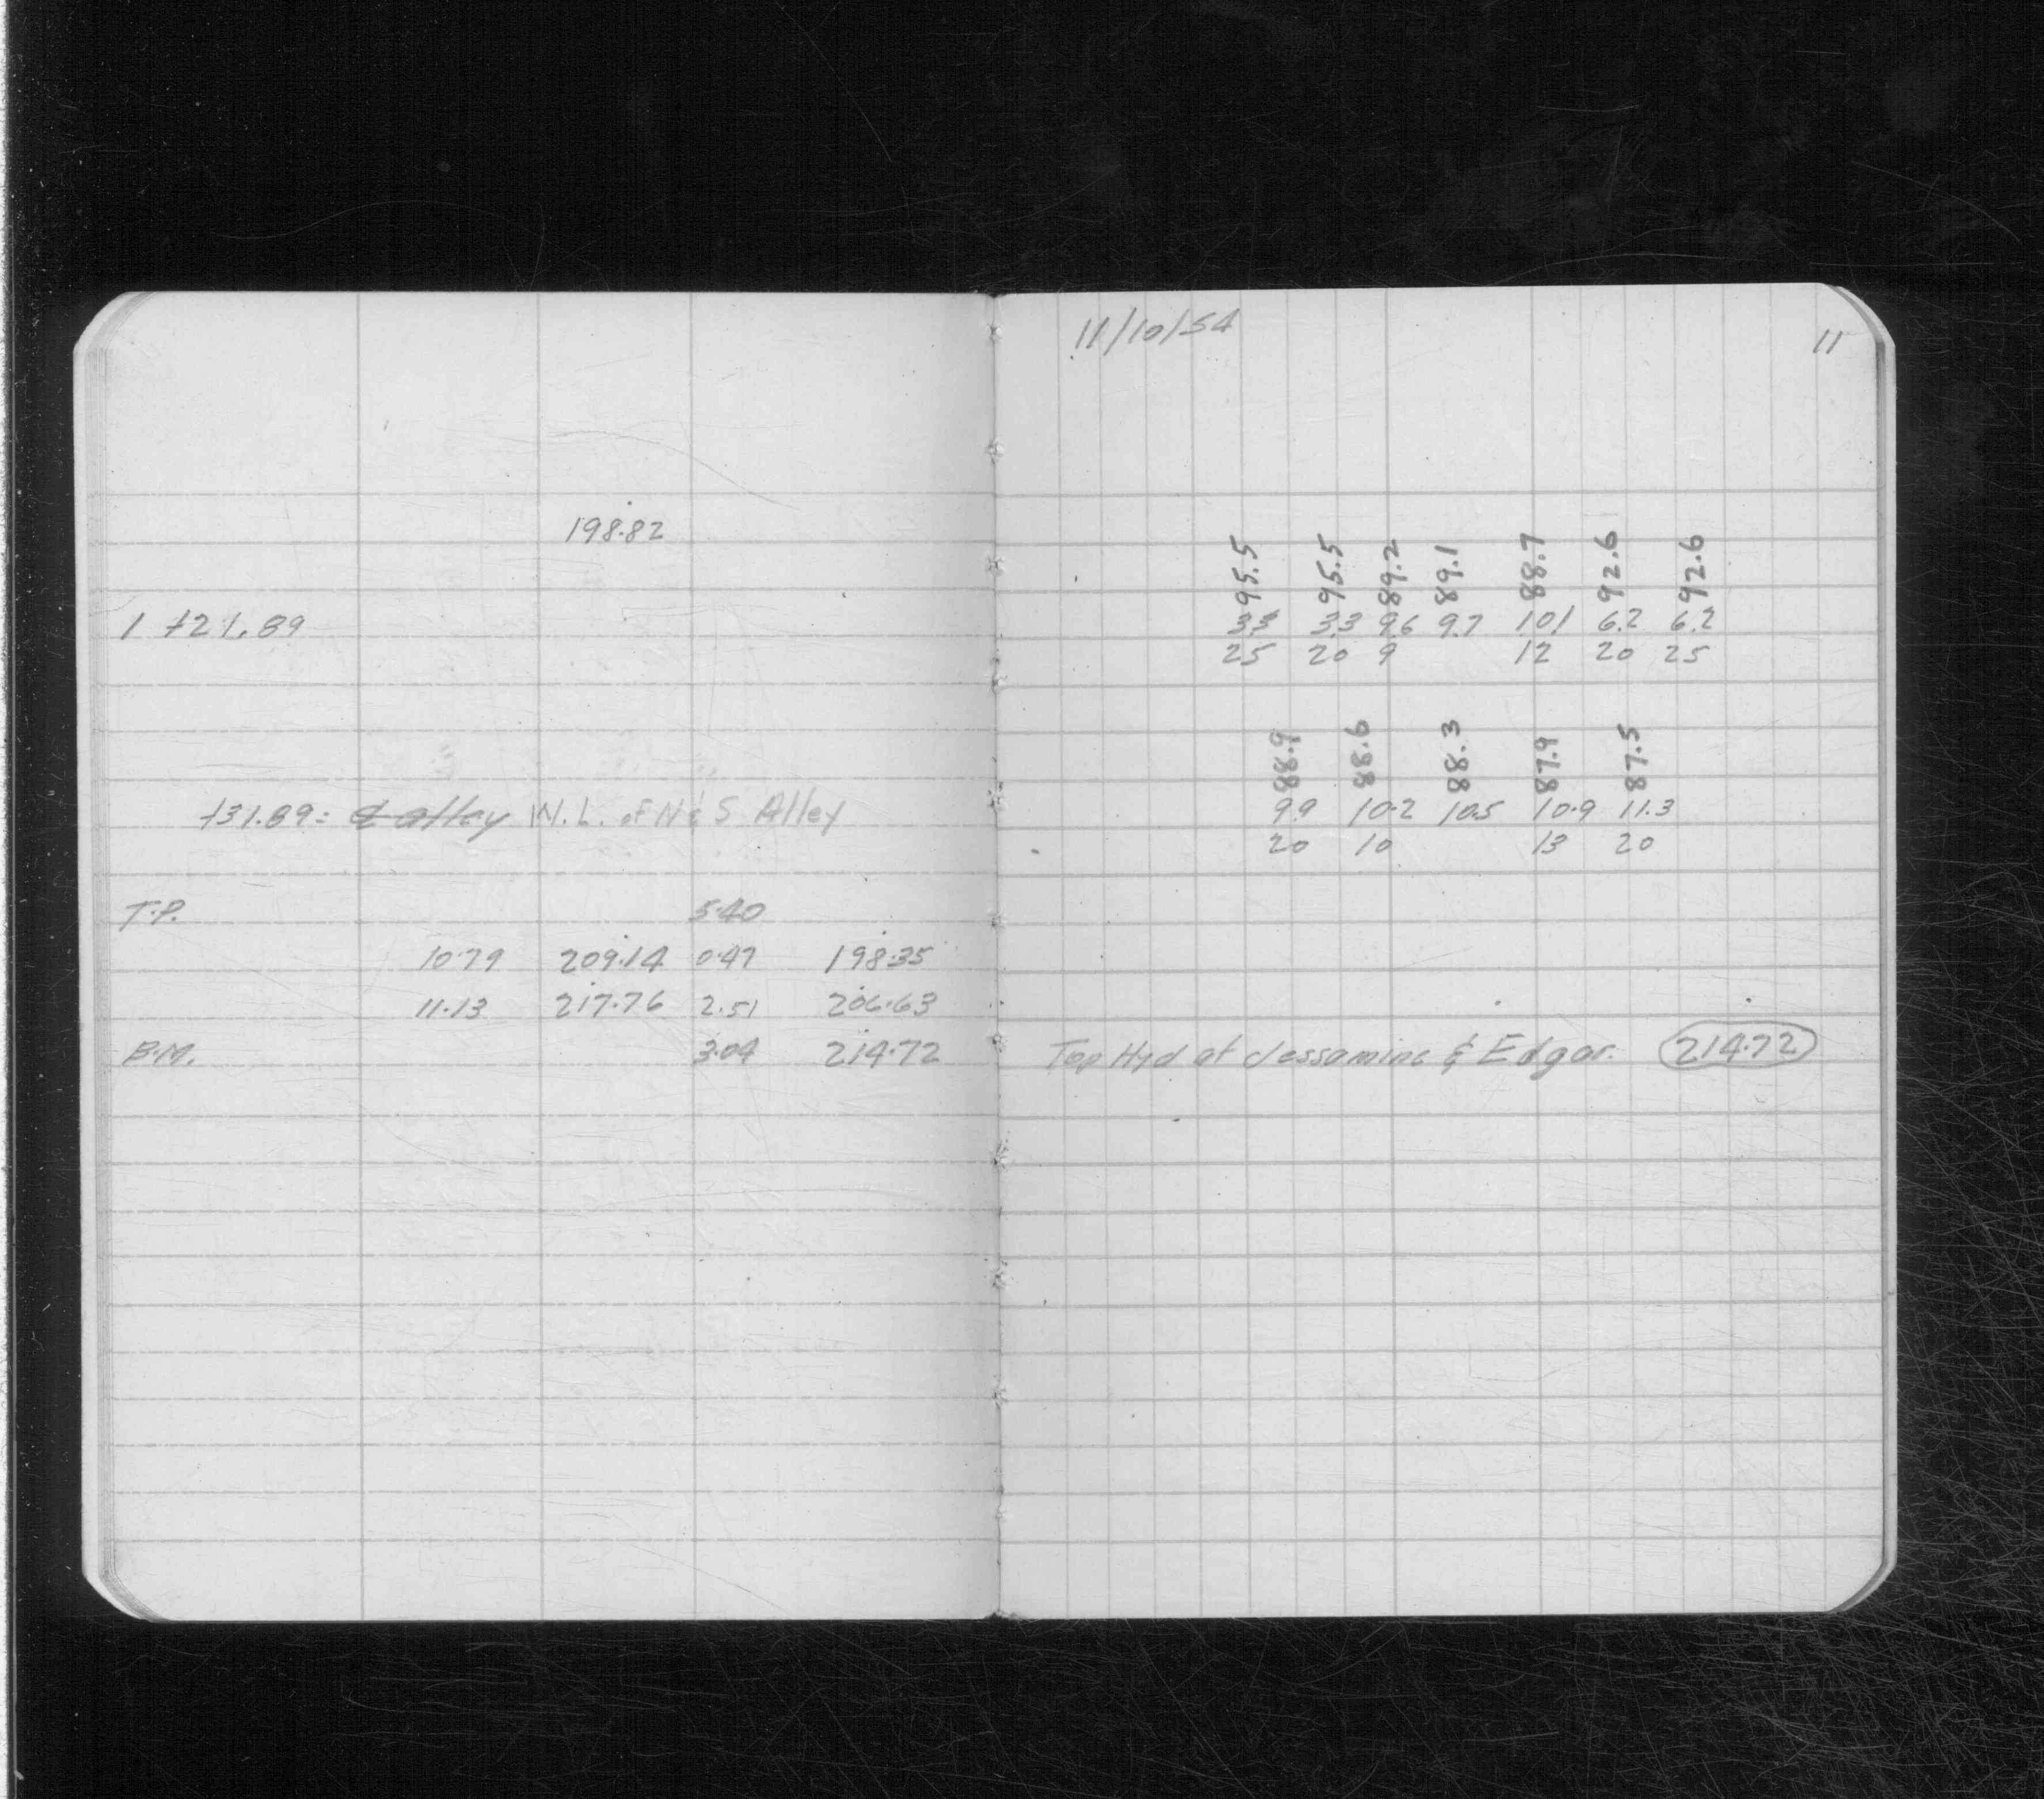 11/10/54 11
198.82
95.5 95.5 89.2 89.1 88.7 92.6 92.6
1 +21.89 3.3 3.3 9.6 9.7 10.1 6.2 6.2
25 20 9 12 20 25
88.9 88.6 88.3 87.9 87.5
+31.89 = ℄ alley W.L. of N & S Alley 9.9 10.2 10.5 10.9 11.3
20 10 13 20
T.P. 5.40
10.79 209.14 0.47 198.35
11.13 217.76 2.51 206.63
B.M. 3.04 214.72 Top Hyd at Jessamine & Edgar. 214.72